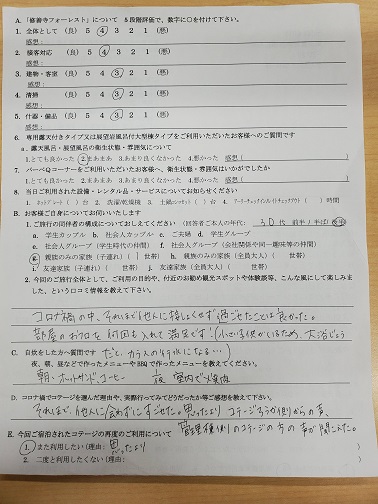 A. 「修善寺フォーレスト」について 5段階評価で、数字に○を付けて下さい。
1. 全体として (良) 5 4 3 2 1 (悪)
感想:
2. 接客対応 (良) 5 4 3 2 1 (悪)
感想:
3. 建物・客室 (良) 5 4 3 2 1 (悪)
感想:
4. 清掃 (良) 5 4 3 2 1 (悪)
感想:
5. 什器・備品 (良) 5 4 3 2 1 (悪)
感想:
6. 専用露天付きタイプ又は展望岩風呂付大型棟タイプをご利用いただいたお客様へのご質問です
a. 露天風呂・展望風呂の衛生状態・雰囲気について
1.とても良かった 2.まあまあ 3.あまり良くなかった 4.悪かった 感想 (
7. バーベQコーナーをご利用いただいたお客様へ、衛生状態・雰囲気はいかがでしたか
1.とても良かった 2.まあまあ 3.あまり良くなかった 4.悪かった 感想 (
8. 当日ご利用された設備・レンタル品・サービスについてお知らせください
B. お客様ご自身についてお伺いいたします
1. ご旅行の同伴者の構成についておしえてください (回答者ご本人の年代: 30代 前半/半ば/後半
a. 学生カップル b. 社会人カップル c. ご夫婦 d. 学生グループ
e. 社会人グループ (学生時代の仲間) f. 社会人グループ (会社関係や同一趣味等の仲間)
g. 親族のみの家族 (子連れ) ( 1 世帯) h. 親族のみの家族 (全員大人) ( 世帯)
i. 友達家族 (子連れ) ( 世帯) j. 友達家族 (全員大人) ( 世帯)
2. 今回のご旅行全体として、ご利用の目的や、付近のお勧め観光スポットや体験談等、こんな風にして楽しみまし
た、という口コミ情報を教えて下さい。
コロナ禍の中、それほど他人に接しなくせず過ごせたことは良かった。
部屋のお風呂を何回も入れて満足です!(小さい子供がいるため、大浴じょう
C. 自炊をした方へ質問です だと、カラスの行水になる…)
夜、朝、昼などで作ったメニューやBBQで作ったメニューを教えてください。
朝・ホットサンド、コーヒー 夜 室内で
D. コロナ禍でコテージを選んだ理由や、実際行ってみてどうだったか等ご感想を教えて下さい。
それほど、他人に会わずにすごせた。思ったより コテージ
管理棟側のコテージの方の声が聞こえた。
E. 今回ご宿泊されたコテージの再度のご利用について
1. また利用したい (理由: 思ったより
2. 二度と利用したくない (理由: